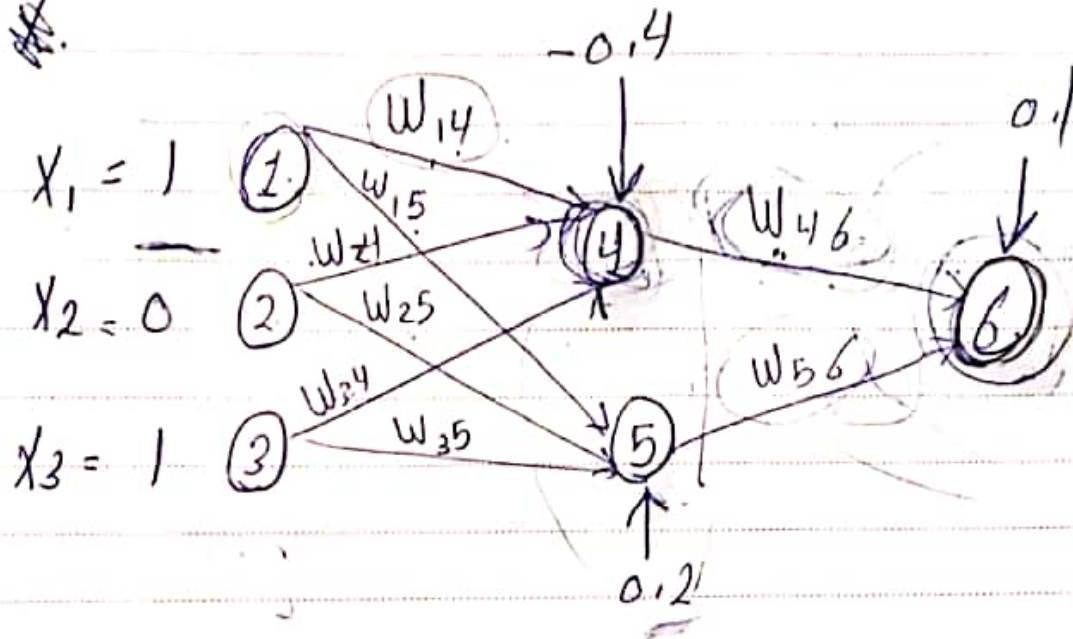 -0.4
0.1
X1 = 1
1
W14
W15
W24
4
W46
X2 = 0
2
W25
6
W34
W56
X3 = 1
3
W35
5
0.2